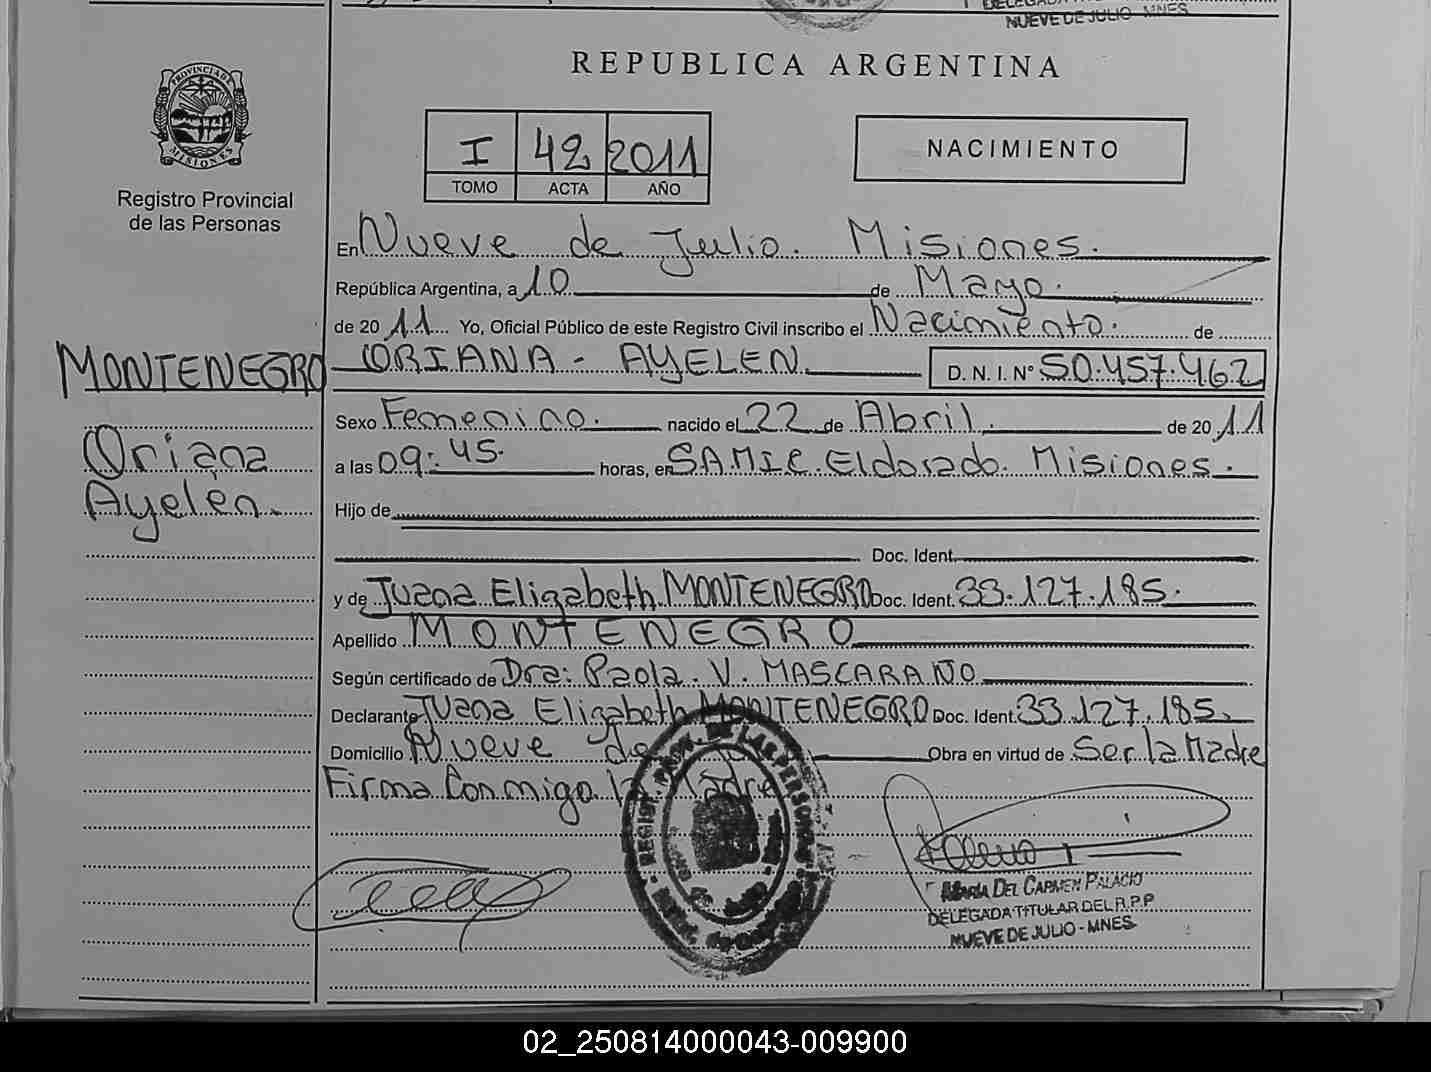 NUEVE DE JULIO - MNES
REPUBLICA ARGENTINA
PROVINCIA DE
MISIONES
Registro Provincial
de las Personas
I 42 2011
TOMO ACTA AÑO
NACIMIENTO
En Nueve de Julio. Misiones.
República Argentina, a 10 de Mayo.
de 2011 Yo, Oficial Público de este Registro Civil inscribo el Nacimiento. de
MONTENEGRO
Oriana
Ayelén.
ORIANA - AYELEN D. N. I. N° 50.457.462
Sexo Femenino. nacido el 22 de Abril. de 2011
a las 09:45. horas, en SAMIC. Eldorado. Misiones.
Hijo de
Doc. Ident.
y de Juana Elizabeth MONTENEGRO Doc. Ident. 33.127.185.
Apellido MONTENEGRO
Según certificado de Dra: Paola. V. MASCARAÑO
Declarante Juana Elizabeth MONTENEGRO Doc. Ident. 33.127.185.
Domicilio Nueve de Obra en virtud de Ser la Madre
Firma Conmigo la Madre
MARIA DEL CARMEN PALACIO
DELEGADA TITULAR DEL R.P.P
NUEVE DE JULIO - MNES.
02_250814000043-009900